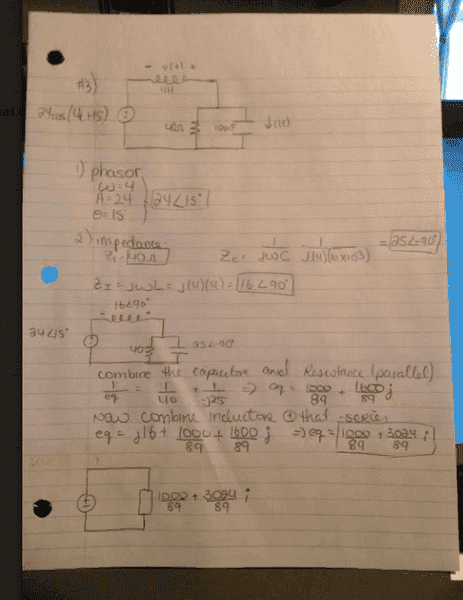 #3)
- v(t) +
4H
24cos(4t+15)
40Ω
10mF
↓i(t)
1) phasor
ω=4
A=24
θ=15
24∠15°
2) impedance
Zr = 40Ω
Zc = 1/jωC 1/j(4)(10x10⁻³) = 25∠-90°
ZI = jωL = j(4)(4) = 16∠90°
16∠90°
- +
24∠15°
40
25∠-90
combine the capacitor and Resistance (parallel)
1/eq = 1/40 + 1/-j25 => eq = 1000/89 + 1600/89 j
Now combine inductor & that -series
eq = j16 + 1000/89 + 1600/89 j => eq = 1000/89 + 3024/89 i
1000/89 + 3024/89 i